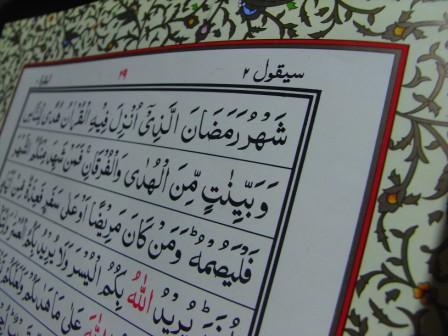 سيقول ٢ ٢٩
شَهْرُ رَمَضَانَ الَّذِيْٓ اُنْزِلَ فِيْهِ الْقُرْاٰنُ هُدًى لِّلنَّاسِ
وَبَيِّنٰتٍ مِّنَ الْهُدٰى وَالْفُرْقَانِ فَمَنْ شَهِدَ مِنْكُمُ الشَّهْرَ
فَلْيَصُمْهُ وَمَنْ كَانَ مَرِيْضًا اَوْ عَلٰى سَفَرٍ فَعِدَّةٌ مِّنْ اَيَّامٍ
يُرِيْدُ اللّٰهُ بِكُمُ الْيُسْرَ وَلَا يُرِيْدُ بِكُمُ
عَلٰى مَا هَدٰىكُمْ وَلَعَلَّكُمْ